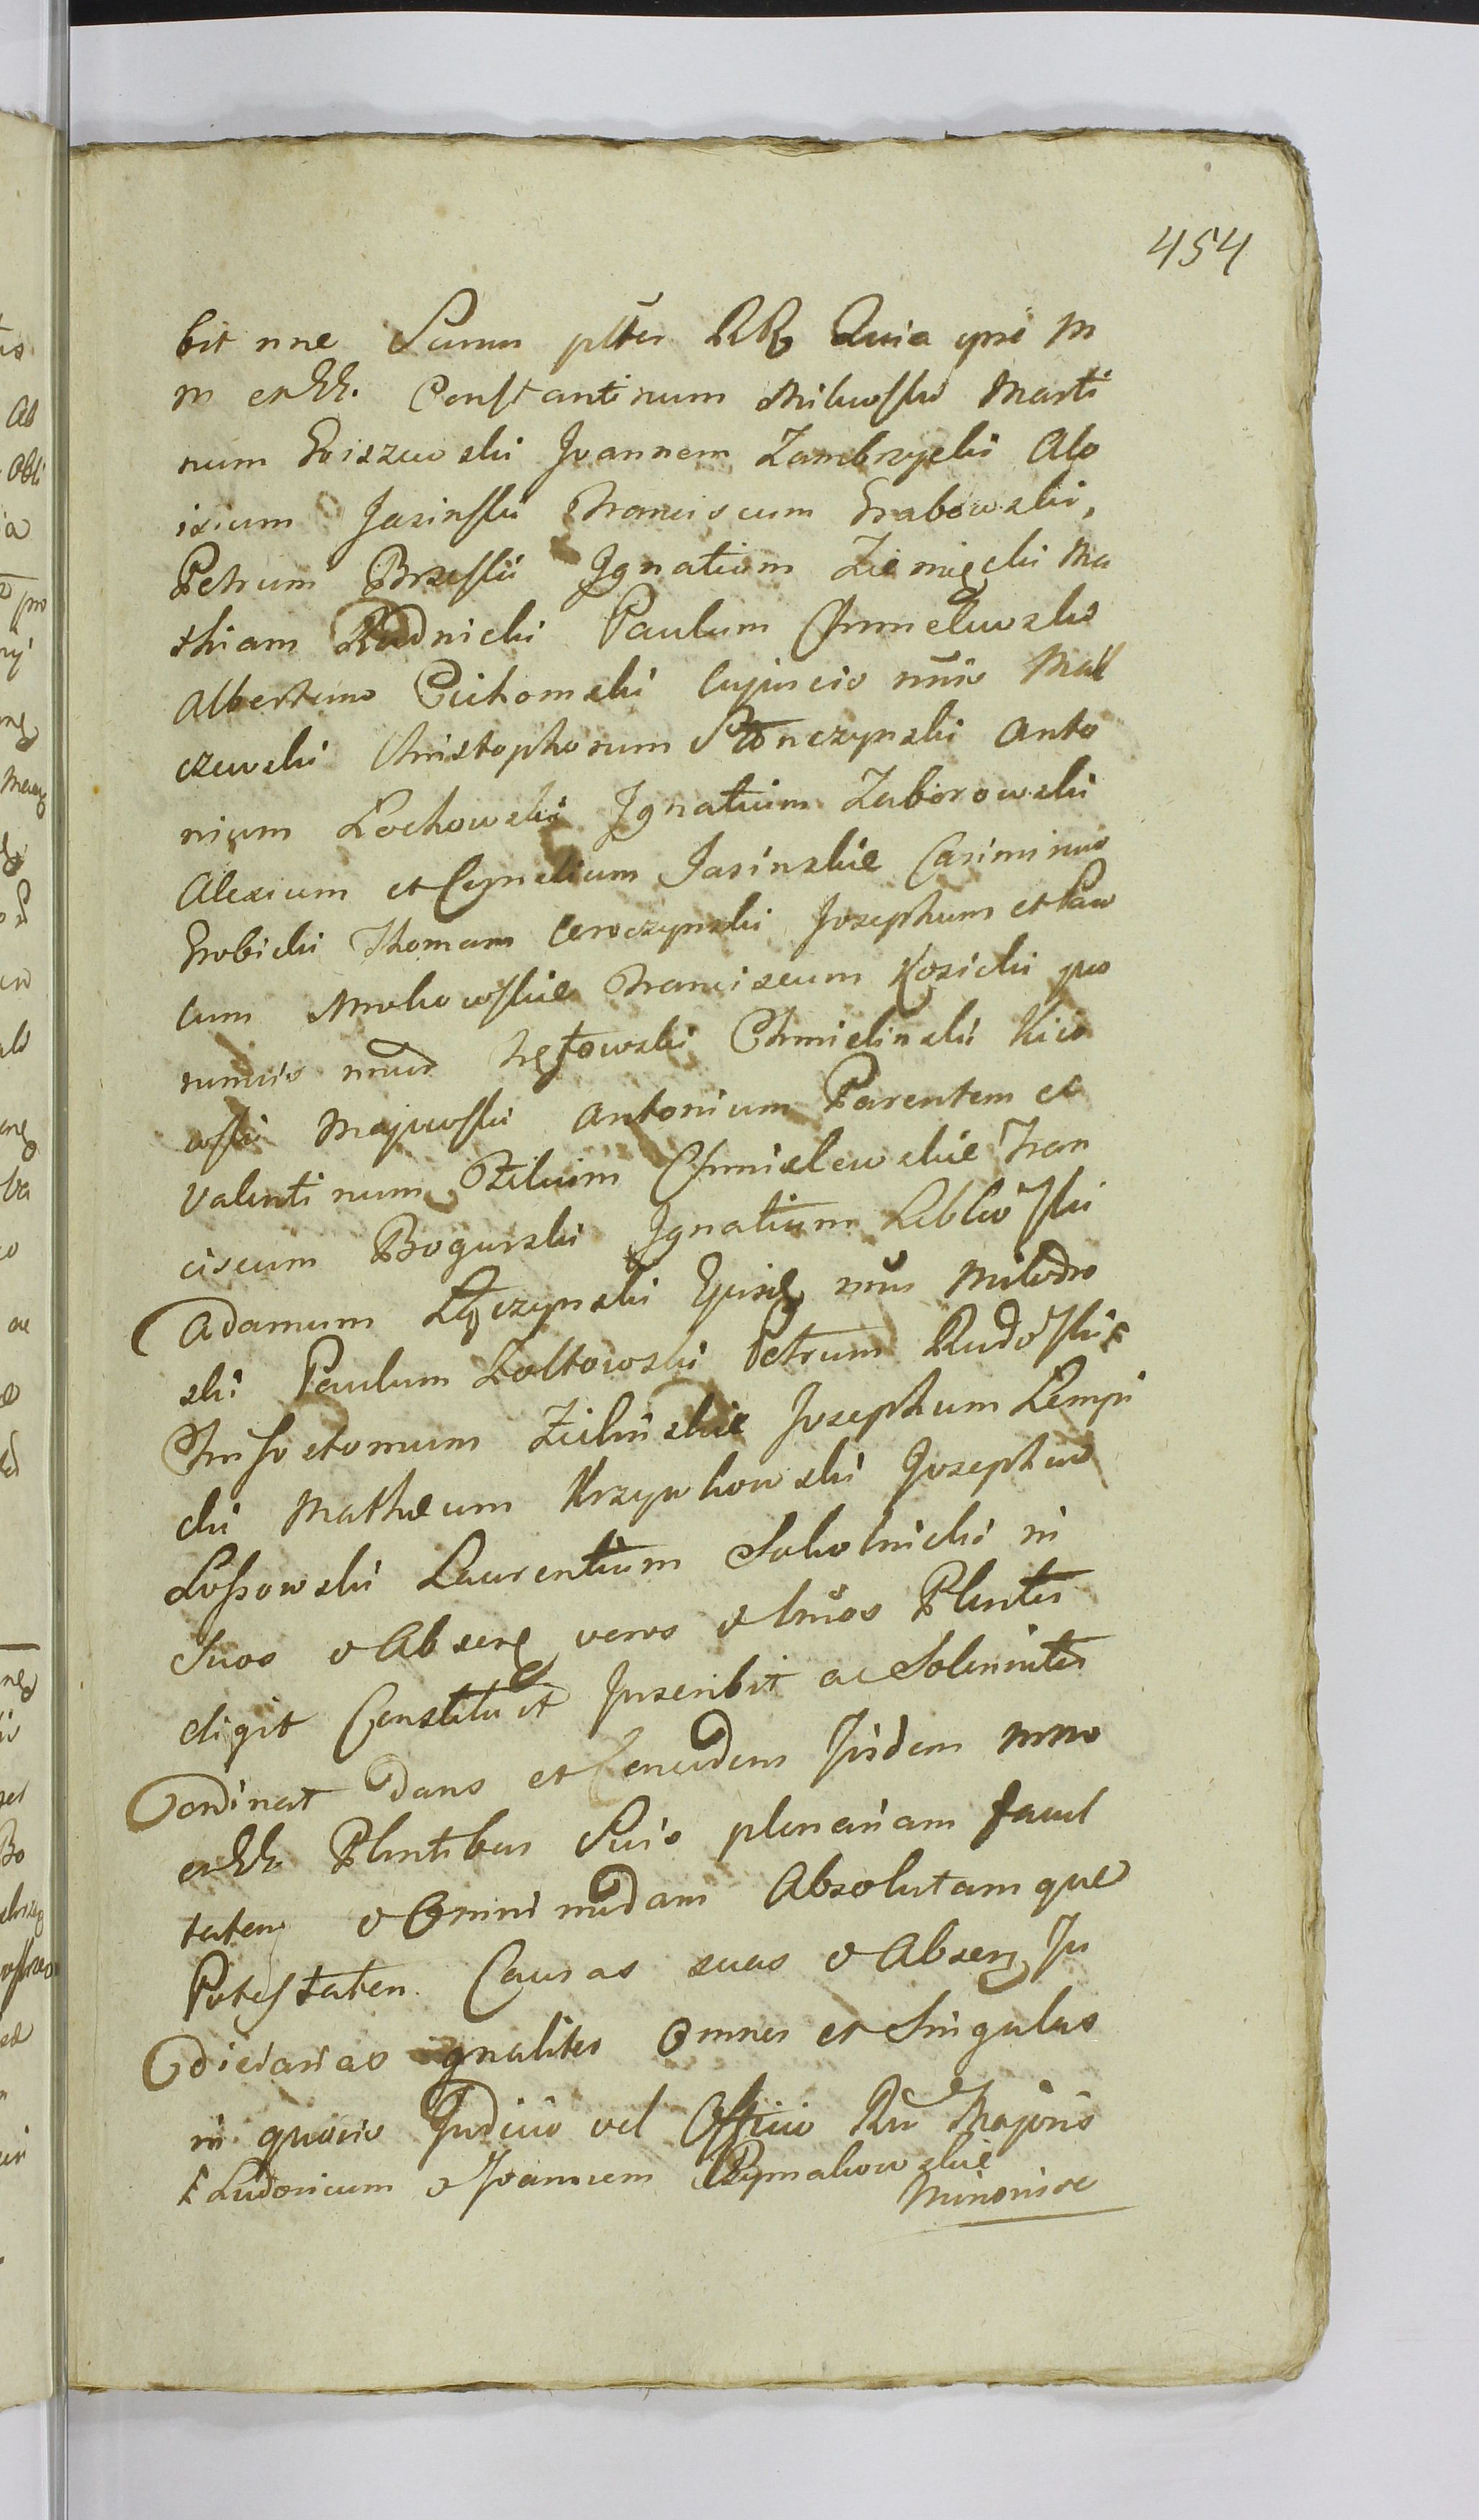 454
bit nne Suum plter RR Quia ipse M
m exLL. Constantinum Milewski Marti
num Goiszewski Joannem Zambrzycki Alo
isium Jasinski Franciscum Grabowski,
Petrum Brzeski Ignatium Ziemięcki Ma
thiam Rudnicki Paulum Chmielewski
Albertum Cichomski cujuscis nnis Mal
czewski Christophorum Stonczynski Anto
nium Lochowski Ignatium Zaborowski
Alexium et Cornelium Jasinskie Casimirum
Grobicki Thomam Ceroczynski Josephum et Paw
lum Mrokowskie Franciscum Kosicki quo
rumvis nnium Chmielinski Kico
wski Majewski Antonium Parentem et
Valentinum Filium Chmielewskie Fran
ciscum Bogurski Ignatium Leblowski
Adamum Łęczynski nnis Milodro
ski Paulum Zoltowski Petrum Rudowski
Chrisostomum Zielinskie Josephum Lempi
cki Matheum Krzywkowski Josephum
Lossowski Laurentium Sokolnicki in
Suos et Absen veros et lnos Plentes
eligit Constituit Inscribit ac Solemniter
Ordinat Dans et Concedens Iisdem mno
exLL Plentibus Suis plenariam facul
tatem et Omnimodam Absolutamque
Potestatem Causas suas et Absen Ju
diciarias gnaliter Omnes et Singulas
in quovis Judicio vel Officio Rni Majoris
Ludovicum et Joannem Rymakowskie
Minorisve